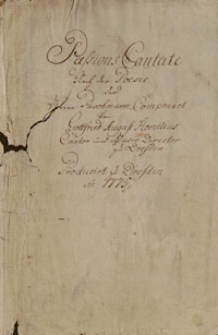 Passions Cantate
Nach der Poesie
des
Herrn Buschmann Componirt
von
Gottfried August Homilius
Cantor und Music Director
zu Dresden
Producirt zu Dresden
1775.